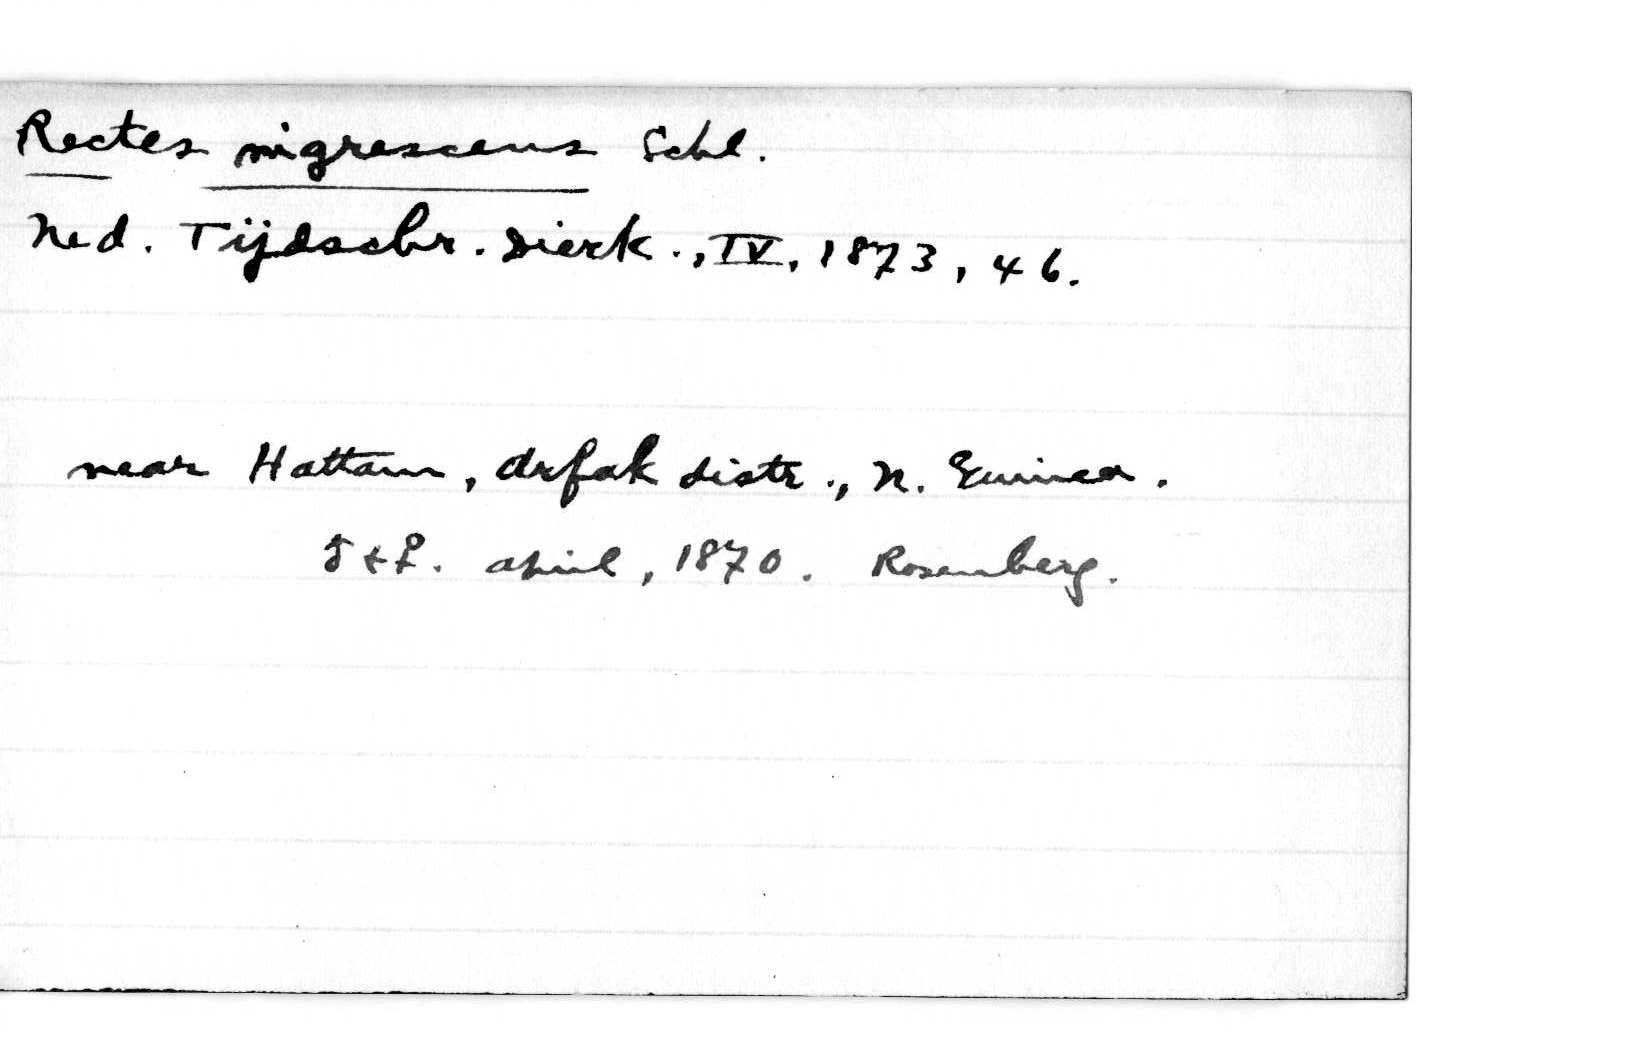 Rectes nigrescens Schl.
Ned. Tijdschr. Dierk., IV, 1873, 46.
near Hattam, Arfak distr., N. Guinea.
♂ + ♀. April, 1870. Rosenberg.